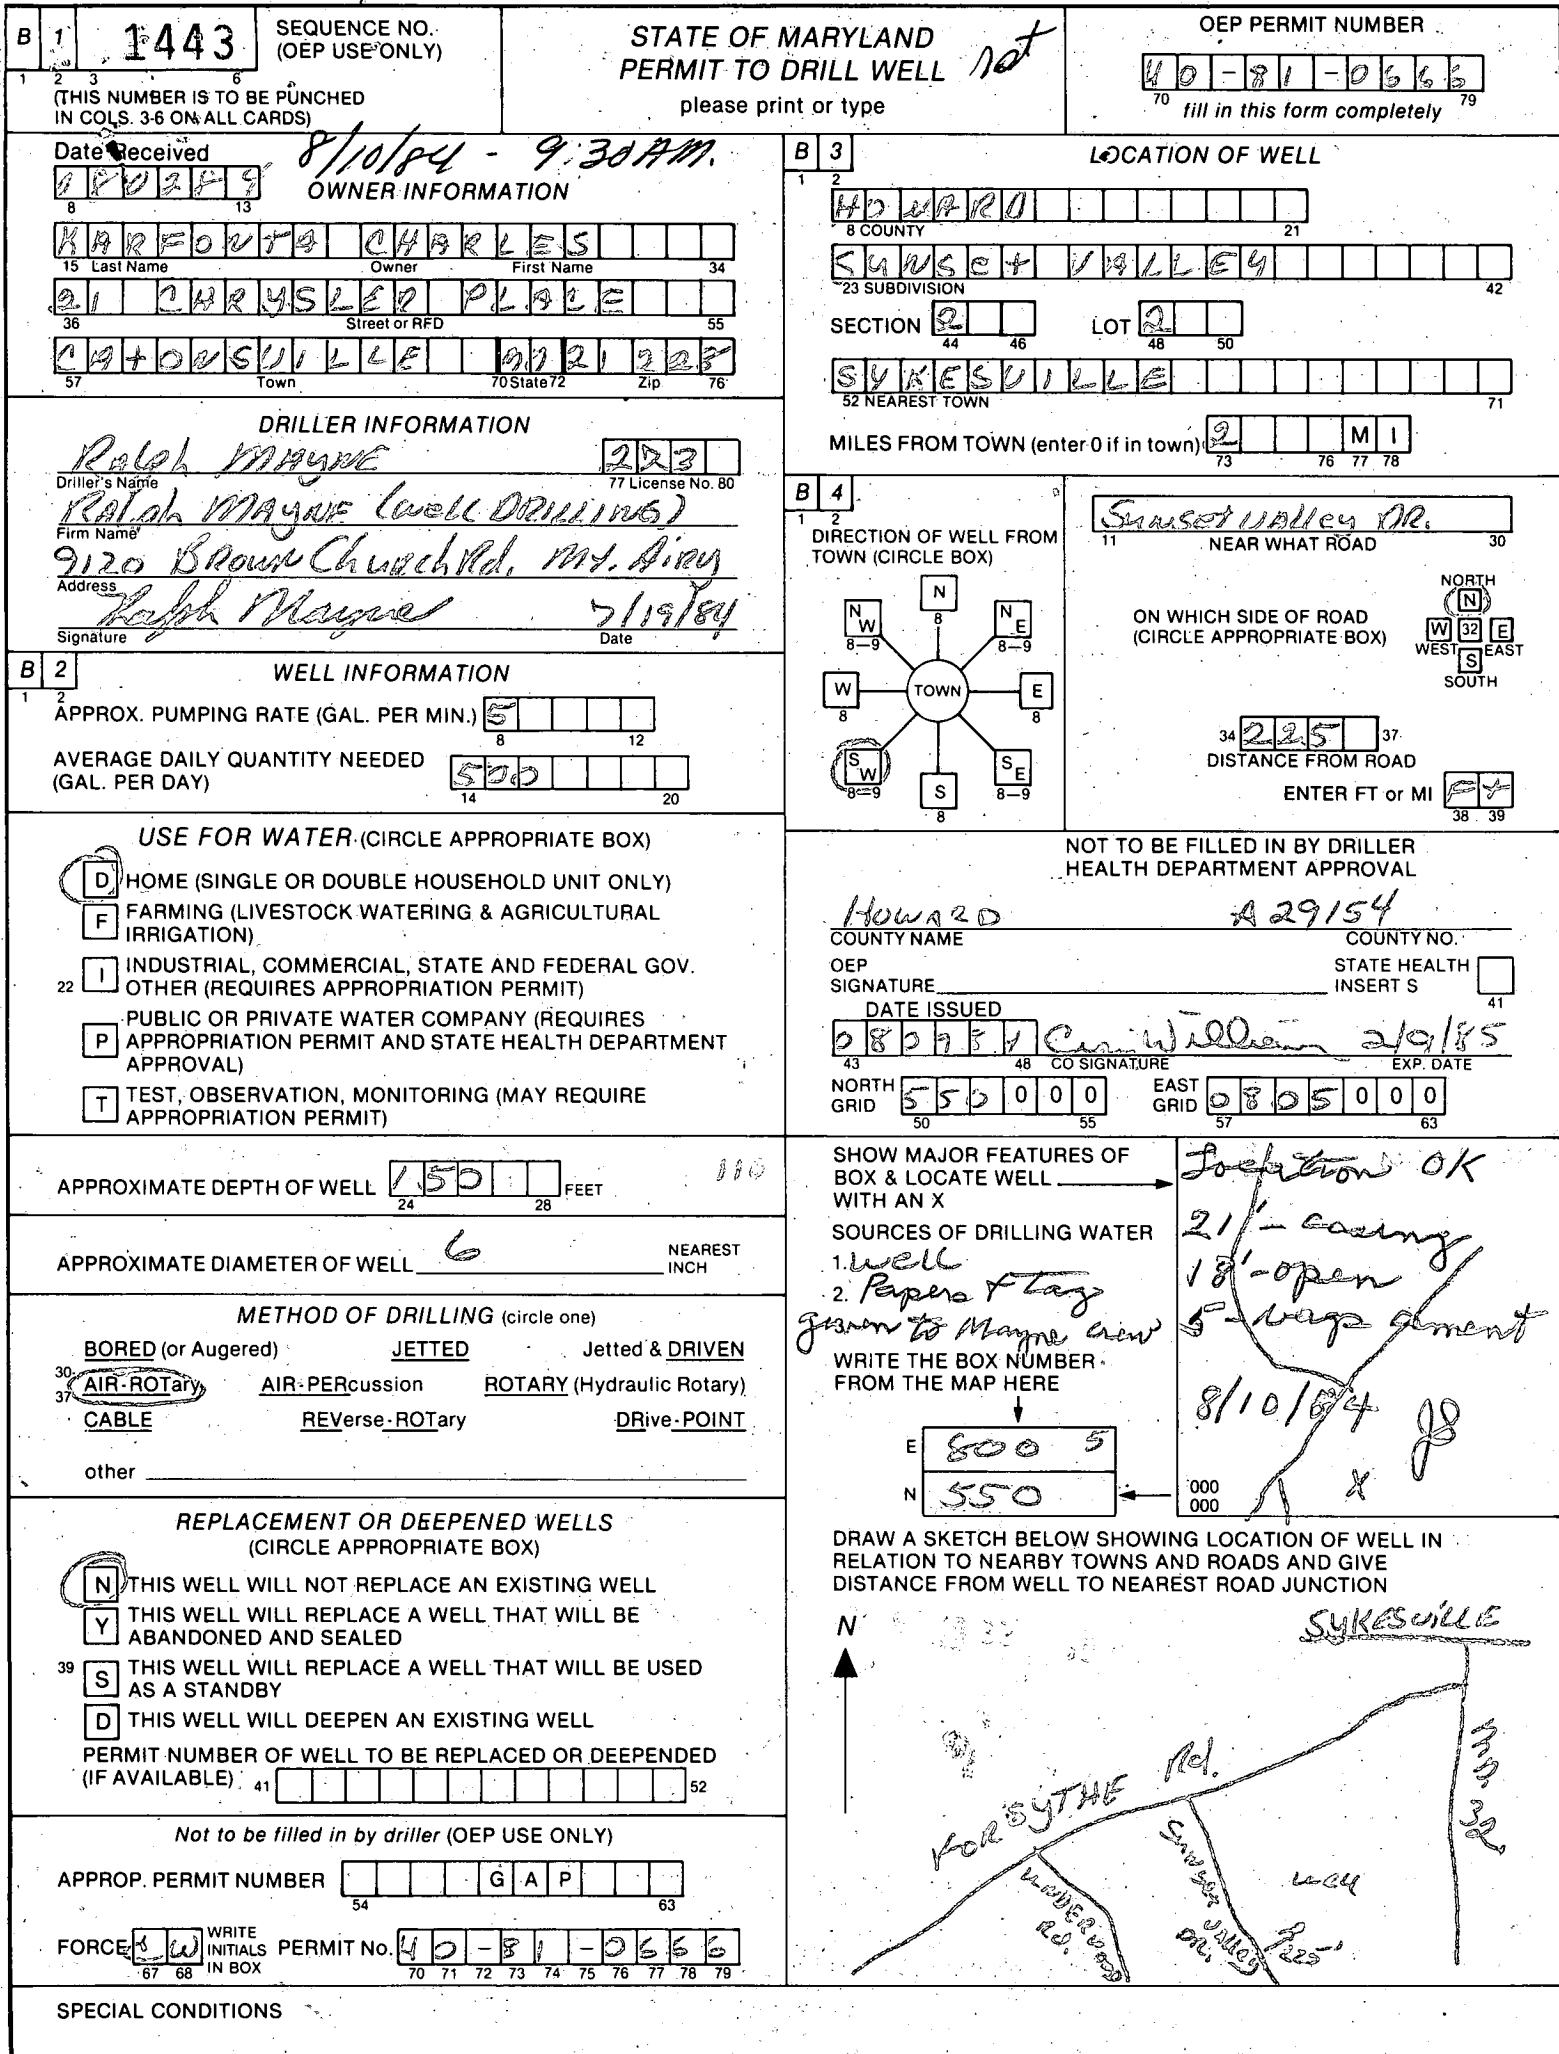 B 1 1443 SEQUENCE NO. (OEP USE ONLY)
1 2 3 6
(THIS NUMBER IS TO BE PUNCHED
IN COLS. 3-6 ON ALL CARDS)
STATE OF MARYLAND
PERMIT TO DRILL WELL
please print or type
OEP PERMIT NUMBER
70 79
fill in this form completely
Date Received 8/10/84 - 9:30 AM.
8 13
OWNER INFORMATION
CHARLES
15 Last Name Owner First Name 34
21 CHRYSLER PLACE
36 Street or RFD 55
CATONSVILLE
57 Town 70 State 72 Zip 76
DRILLER INFORMATION
Ralph MAYNE 223
Driller's Name 77 License No. 80
Ralph MAYNE (well DRILLING)
Firm Name
9120 Brown Church Rd. Mt. Airy
Address
Ralph Mayne 7/19/84
Signature Date
B 2 WELL INFORMATION
1 2
APPROX. PUMPING RATE (GAL. PER MIN.) 5
8 12
AVERAGE DAILY QUANTITY NEEDED
(GAL. PER DAY) 500
14 20
USE FOR WATER (CIRCLE APPROPRIATE BOX)
D HOME (SINGLE OR DOUBLE HOUSEHOLD UNIT ONLY)
F FARMING (LIVESTOCK WATERING & AGRICULTURAL
IRRIGATION)
22 I INDUSTRIAL, COMMERCIAL, STATE AND FEDERAL GOV.
OTHER (REQUIRES APPROPRIATION PERMIT)
P PUBLIC OR PRIVATE WATER COMPANY (REQUIRES
APPROPRIATION PERMIT AND STATE HEALTH DEPARTMENT
APPROVAL)
T TEST, OBSERVATION, MONITORING (MAY REQUIRE
APPROPRIATION PERMIT)
APPROXIMATE DEPTH OF WELL 150 FEET 110
24 28
APPROXIMATE DIAMETER OF WELL 6 NEAREST
INCH
METHOD OF DRILLING (circle one)
BORED (or Augered) JETTED Jetted & DRIVEN
30 37 AIR-ROTary AIR-PERcussion ROTARY (Hydraulic Rotary)
CABLE REVerse-ROTary DRive-POINT
other
REPLACEMENT OR DEEPENED WELLS
(CIRCLE APPROPRIATE BOX)
N THIS WELL WILL NOT REPLACE AN EXISTING WELL
Y THIS WELL WILL REPLACE A WELL THAT WILL BE
ABANDONED AND SEALED
39 S THIS WELL WILL REPLACE A WELL THAT WILL BE USED
AS A STANDBY
D THIS WELL WILL DEEPEN AN EXISTING WELL
PERMIT NUMBER OF WELL TO BE REPLACED OR DEEPENDED
(IF AVAILABLE) 41 52
Not to be filled in by driller (OEP USE ONLY)
APPROP. PERMIT NUMBER G A P
54 63
FORCE WRITE INITIALS IN BOX PERMIT No. 40-81-0666
67 68 70 71 72 73 74 75 76 77 78 79
SPECIAL CONDITIONS
B 3 LOCATION OF WELL
1 2
HOWARD
8 COUNTY 21
SUNSET VALLEY
23 SUBDIVISION 42
SECTION 2 LOT 2
44 46 48 50
SYKESVILLE
52 NEAREST TOWN 71
MILES FROM TOWN (enter 0 if in town) 2 M I
73 76 77 78
B 4
1 2
DIRECTION OF WELL FROM
TOWN (CIRCLE BOX)
N
8
NW NE
8-9 8-9
W TOWN E
8 8
SW SE
8-9 8-9
S
8
Sunset Valley DR.
11 NEAR WHAT ROAD 30
ON WHICH SIDE OF ROAD
(CIRCLE APPROPRIATE BOX)
NORTH
N
W 32 E
WEST EAST
S
SOUTH
34 225 37
DISTANCE FROM ROAD
ENTER FT or MI Ft
38 39
NOT TO BE FILLED IN BY DRILLER
HEALTH DEPARTMENT APPROVAL
HOWARD A 29154
COUNTY NAME COUNTY NO.
OEP
SIGNATURE
STATE HEALTH
INSERT S
41
DATE ISSUED
2/9/85
43 48 CO SIGNATURE EXP. DATE
NORTH GRID 550 000 EAST GRID 0805 000
50 55 57 63
SHOW MAJOR FEATURES OF
BOX & LOCATE WELL
WITH AN X
SOURCES OF DRILLING WATER
1. well
2. Papers & tag
given to Mayne crew
WRITE THE BOX NUMBER
FROM THE MAP HERE
E 800 5
N 550
000
000
Location OK
21'- casing
18'-open
5 - bags cement
8/10/84 JS
X
DRAW A SKETCH BELOW SHOWING LOCATION OF WELL IN
RELATION TO NEARBY TOWNS AND ROADS AND GIVE
DISTANCE FROM WELL TO NEAREST ROAD JUNCTION
N
SYKESVILLE
FORSYTHE Rd.
32
UNDERWOOD RD.
SUNSET VALLEY DR.
well
225'